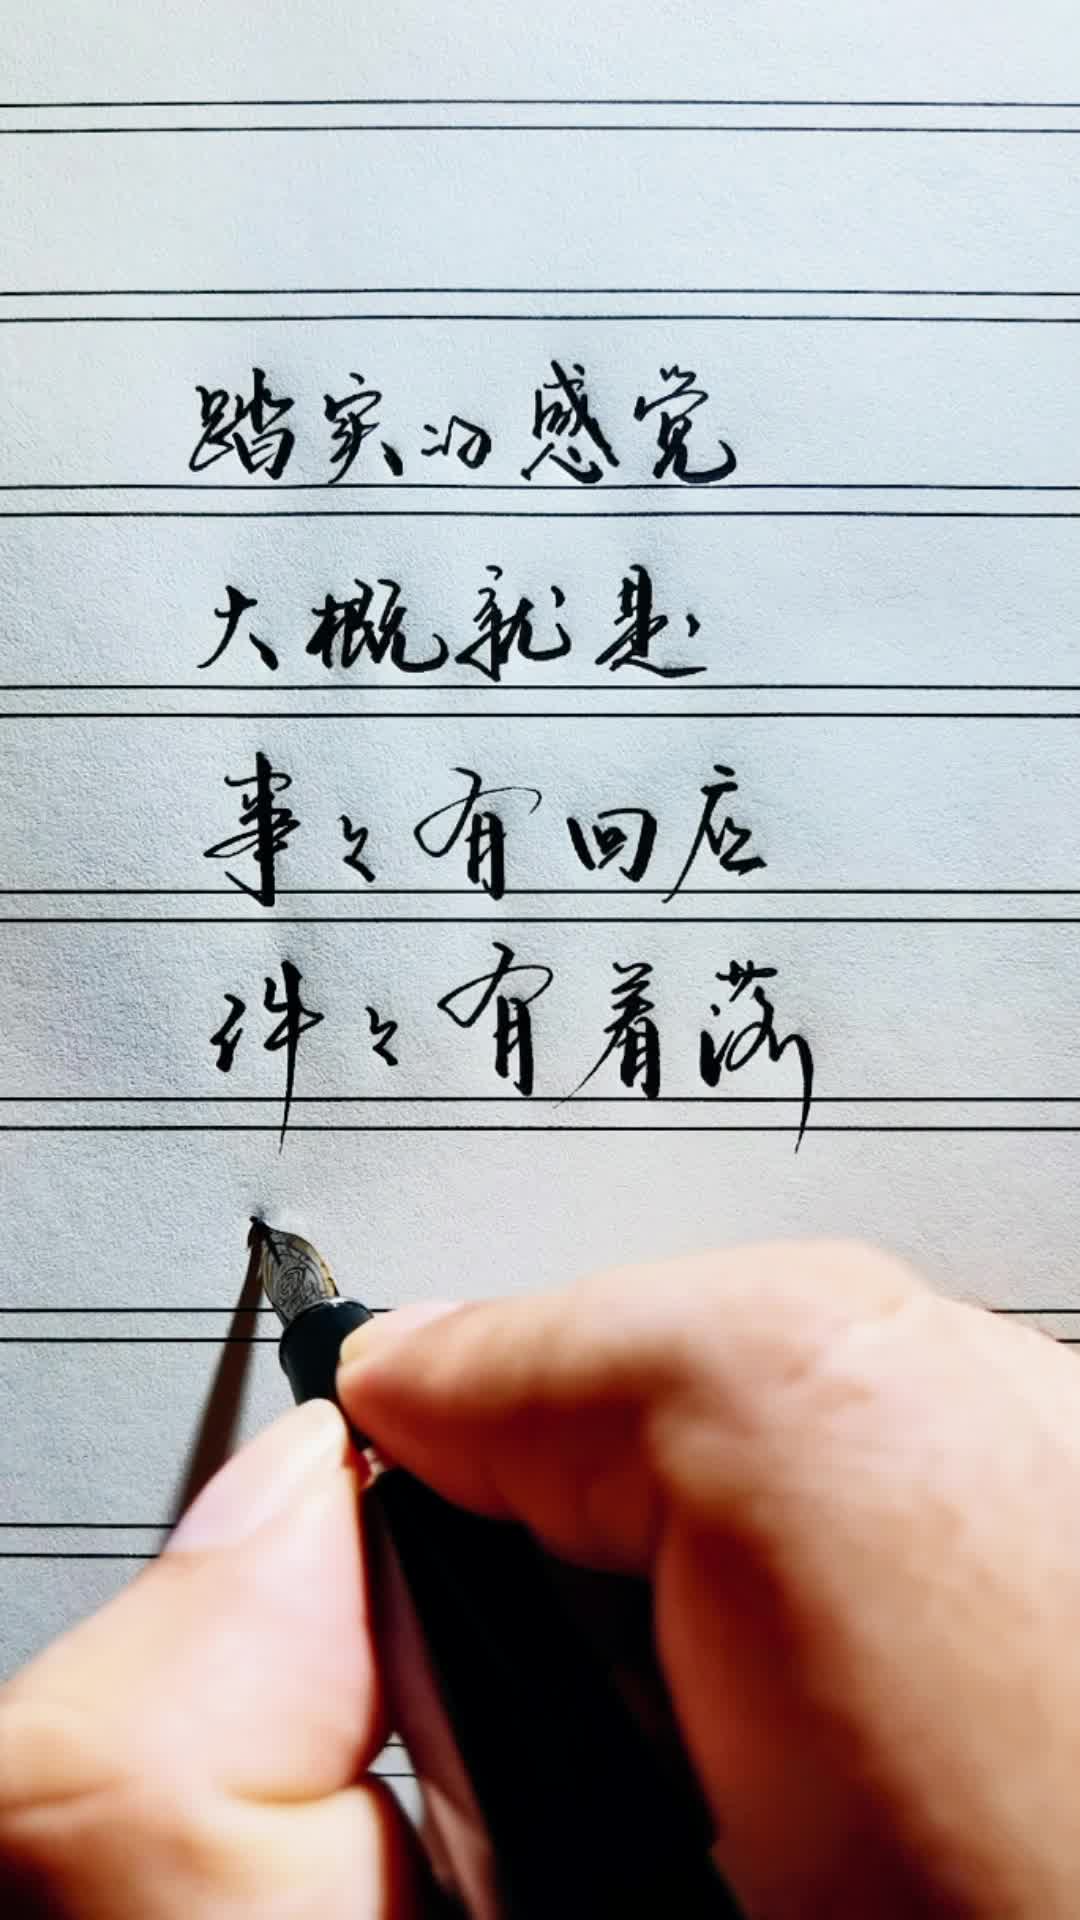 踏实的感觉
大概就是
事々有回应
件々有着落